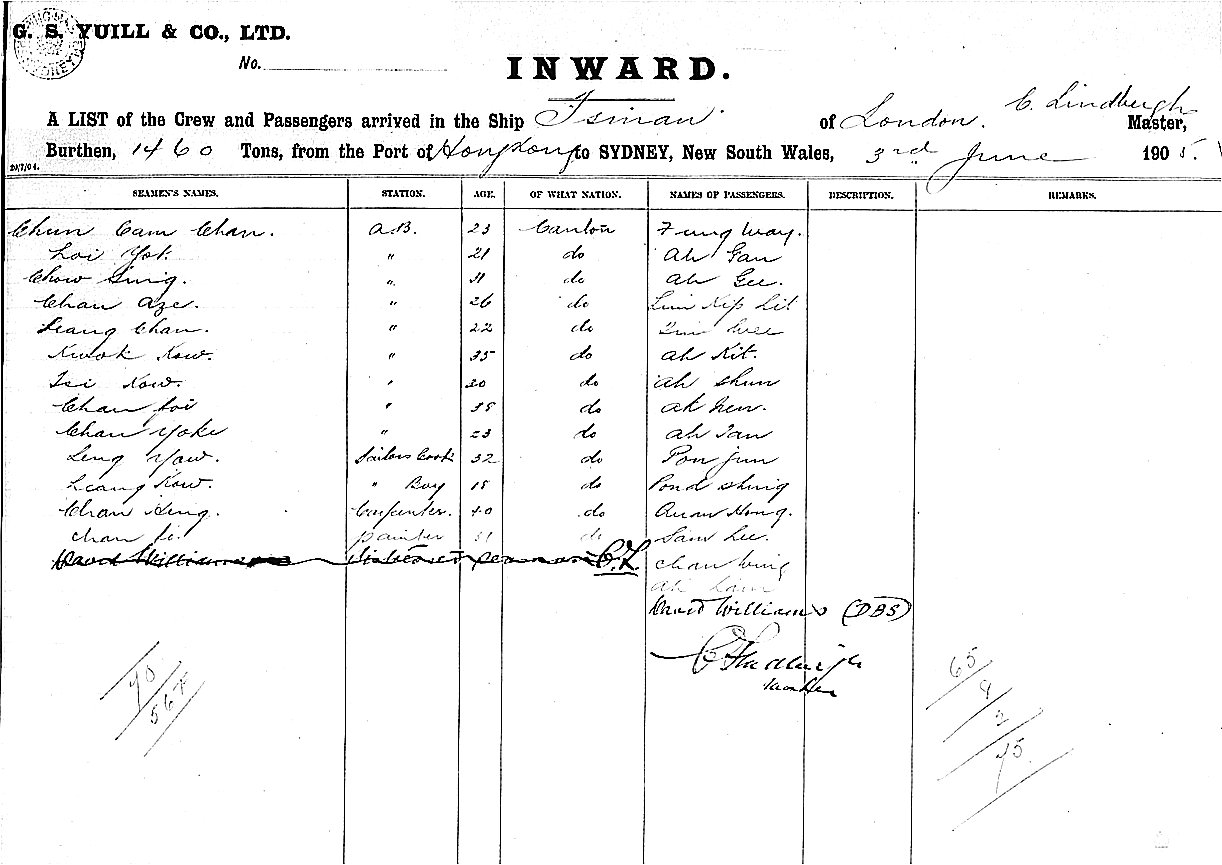 G. S. YUILL & CO., LTD.
No.
INWARD.
C. Lindbergh
A LIST of the Crew and Passengers arrived in the Ship Tsinan of London. Master,
Burthen, 1460 Tons, from the Port of Hong Kong to SYDNEY, New South Wales, 3rd June 1905.
20/7/04.
SEAMEN'S NAMES. STATION. AGE. OF WHAT NATION. NAMES OF PASSENGERS. DESCRIPTION. REMARKS.
Chun Cam Chan. A.B. 23 Canton Fung Way.
Loi Yok " 21 do Ah Gan
Chow Sing. " do Ah Gee.
Chan Aze. " 26 do Lim Kip Lit
Leang Chan. " 22 do
Kwok Kow. " 35 do Ah Kit.
Tsi Kow. " 20 do Ah Shun
Chan Joi " 38 do Ah New.
Chan Yoke " 23 do Ah Tan
Leng Yaw. Sailors Cook 32 do Pon Jun
Leang Kow. " Boy 18 do Pond Shing
Chan Hing. Carpenter. 40 do Hong.
Chan painter do Sam Lee.
David Williams distressed seaman C.L. Chan Wing
Ah Lam
David Williams (DBS)
C Lindbergh
Master
70
567
65
9
2
75